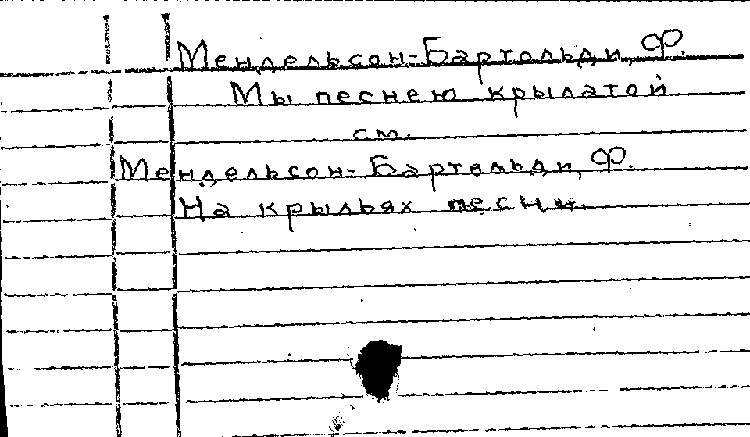 Мендельсон-Бартольди, Ф.
Мы песнею крылатой
см.
Мендельсон-Бартольди, Ф.
На крыльях песни.